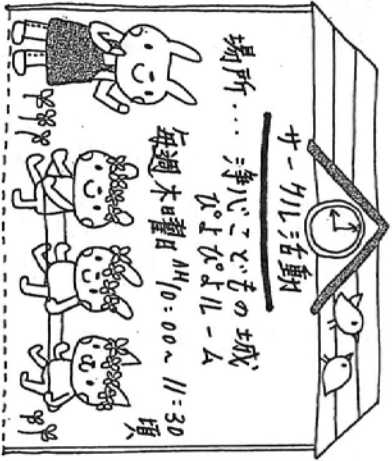 サークル活動
場所... 浄心こどもの城
ぴよぴよルーム
毎週木曜日 AM10:00～11:30頃